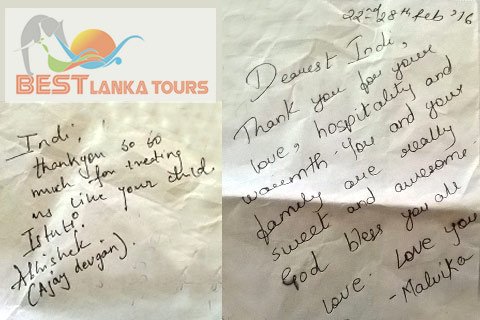 BEST LANKA TOURS
Indi,
thankyou so so
much for treating
us like your child.
Istuti.
Abhishek
(Ajay devgan).
22nd - 28th feb '16
Dearest Indi,
Thank you for your
love, hospitality and
warmth. You and your
family are really
sweet and awesome.
God bless you all
love. Love you
- Malvika